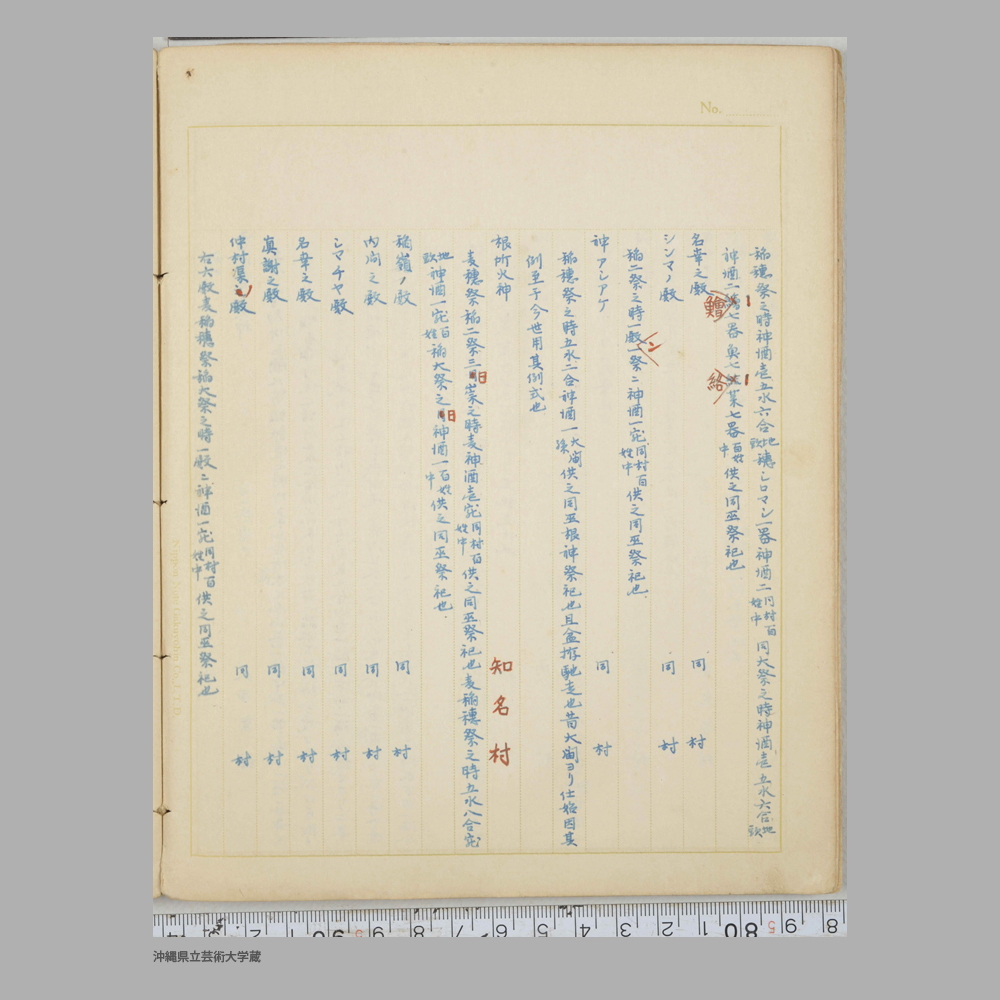 No.
稲穂祭之時神酒壱五水六合地頭穂シロマシ一器神酒二同村百姓中同大祭之時神酒壱五水六合地頭
神酒二鱠七器奥七絡菜七器百姓中供之同巫祭祀也
名幸之殿 同村
シンマノ殿 同村
稲二祭之時一殿ン祭ニ神酒一宛同村百姓中供之同巫祭祀也
神アシアケ 同村
稲穂祭之時五水二合神酒一大洞供之同巫根神祭祀也且盆擲馳走也昔大洞ヨリ仕始因其
例至于今世用其例式也
根所火神 知名村
麦穂祭稲二祭三日崇之時麦神酒壱宛同村百姓中供之同巫祭祀也麦稲穂祭之時五水八合宛
地頭神酒一宛百姓稲大祭之日神酒一百姓中供之同巫祭祀也
稲嶺ノ殿 同村
内間之殿 同村
シマチヤ殿 同村
名幸之殿 同村
真謝之殿 同村
仲村渠ノ殿 同村
右六殿麦稲穂祭稲大祭之時一殿ニ神酒一宛同村百姓中供之同巫祭祀也
沖縄県立芸術大学蔵